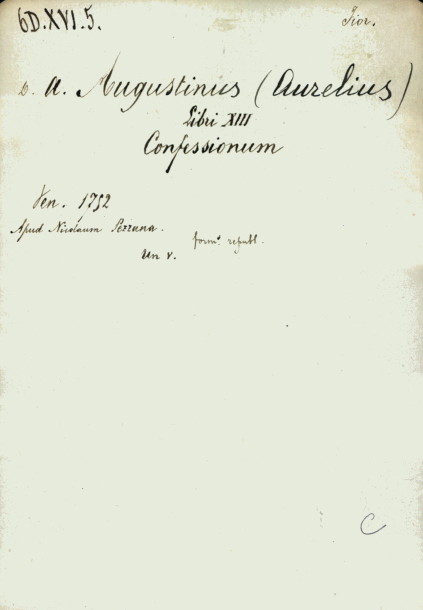 6D.XVI.5.
Fior.
s. A. Augustinus (Aurelius)
Libri XIII
Confessionum
Ven. 1752
Apud Nicolaum Pezzana.
Un v.
C